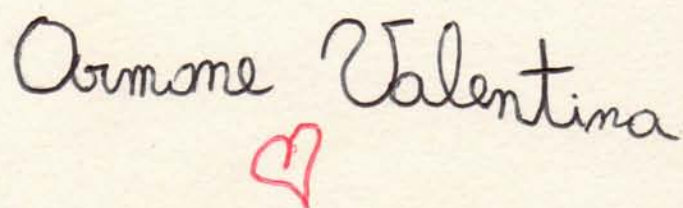 Armone Valentina